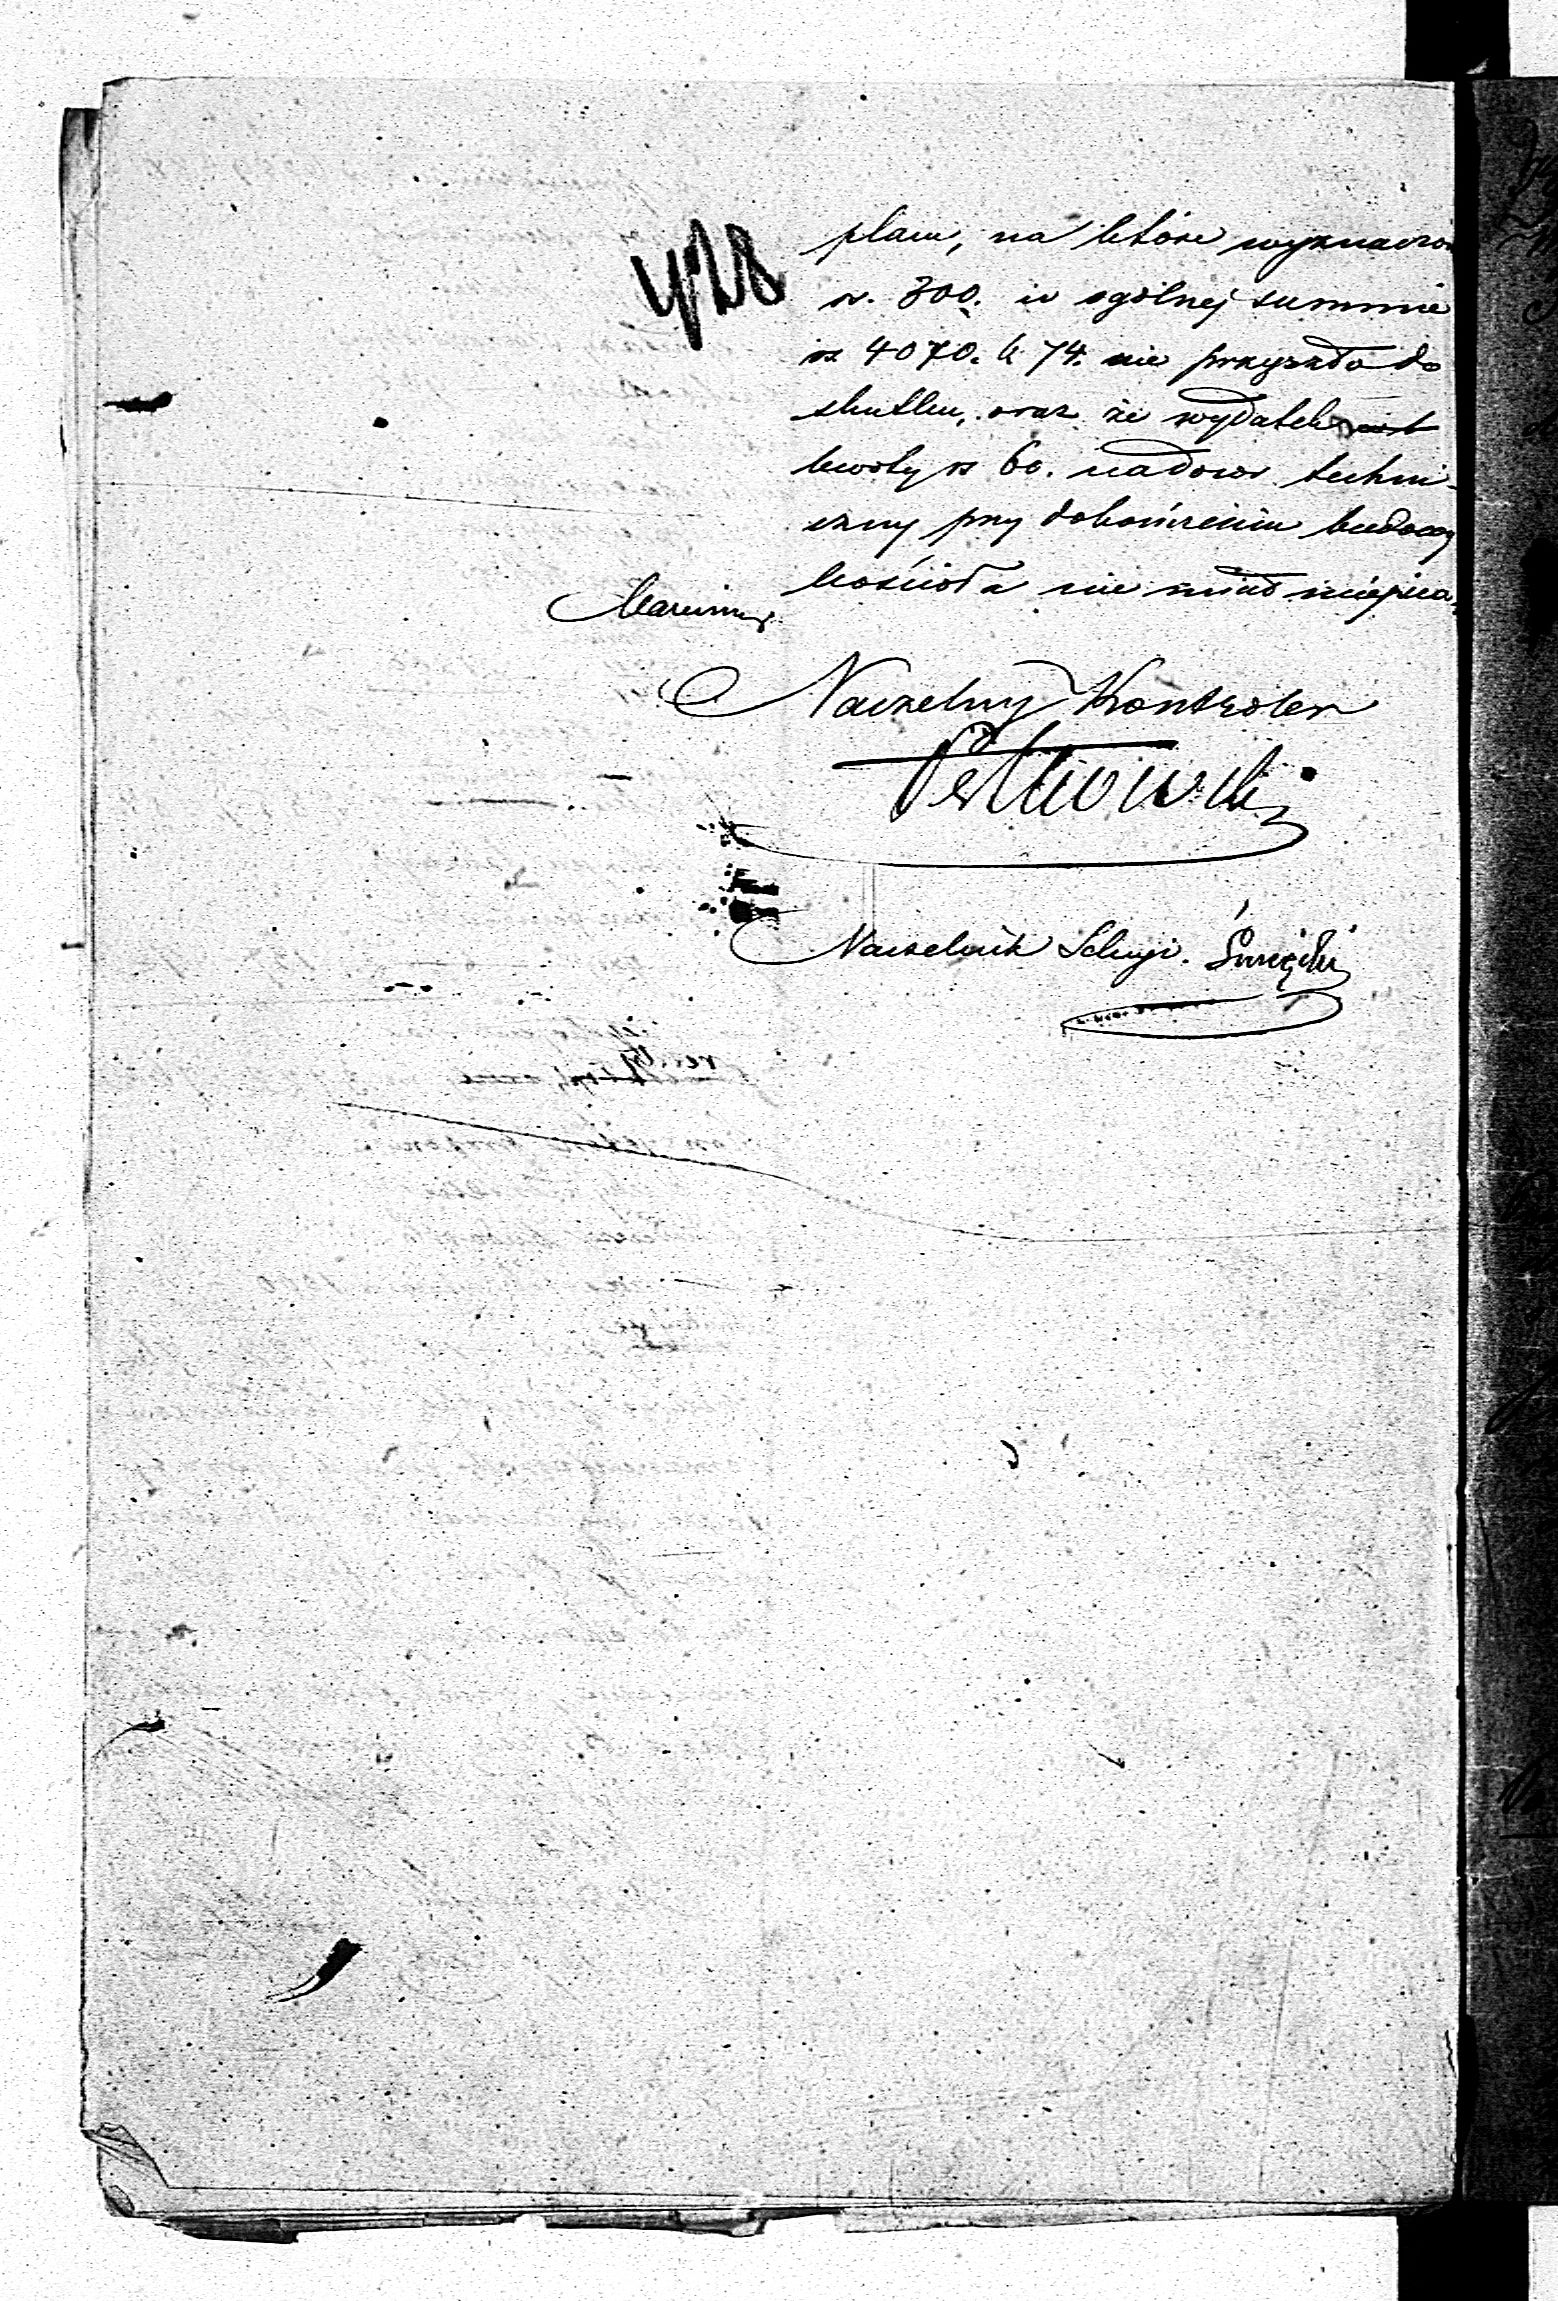 428
placu, na które wyznaczon
rs. 300. w ogólnej summie
rs 4070. k 74. nie przyszło do
skutku, oraz że wydatek
kwoty rs 60. nadzór techni-
czny przy dokończeniu budowy
kościoła nie miał miejsca.
Naczelny Kontroler
Petkowski
Naczelnik Sekcyi.